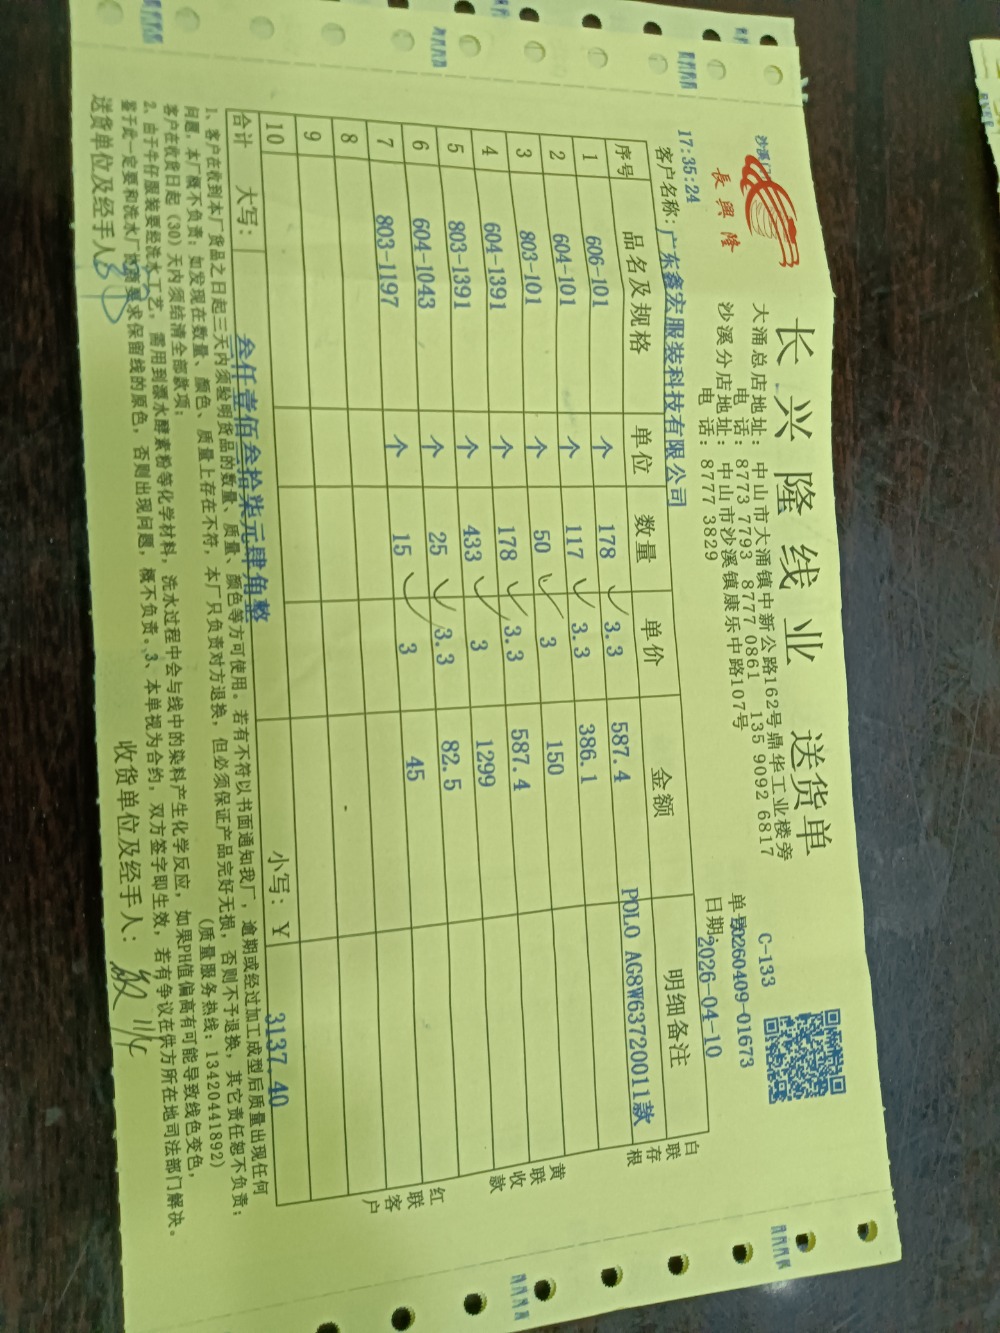 長興隆
长兴隆线业 送货单
大涌总店地址: 中山市大涌镇中新公路162号鼎华工业楼旁
电 话: 8773 7793 8777 0861 135 9092 6817
沙溪分店地址: 中山市沙溪镇康乐中路107号
电 话: 8777 3829
C-133
单号:20260409-01673
日期:2026-04-10
17:35:24
客户名称:广东鑫宏服装科技有限公司
序号 品名及规格 单位 数量 单价 金额 明细备注
1 606-101 个 178 3.3 587.4 POLO AG8W63720011款
2 604-101 个 117 3.3 386.1
3 803-101 个 50 3 150
4 604-1391 个 178 3.3 587.4
5 803-1391 个 433 3 1299
6 604-1043 个 25 3.3 82.5
7 803-1197 个 15 3 45
8
9
10
合计 大写: 叁仟壹佰叁拾柒元肆角整 小写: Y 3137.40
白联存根
黄联收款
红联客户
1、客户在收到本厂货品之日起三天内须验明货品的数量、质量、颜色等方可使用。若有不符以书面通知我厂，逾期或经过加工成型后质量出现任何
问题，本厂概不负责；如发现在数量、颜色、质量上存在不符，本厂只负责对方退换，但必须保证产品完好无损，否则不予退换，其它责任恕不负责；
客户在收货日起（30）天内须结清全部款项； (质量服务热线: 13420441892)
2、由于牛仔服装要经洗水工艺，需用到漂水酵素粉等化学材料，洗水过程中会与线中的染料产生化学反应，如果PH值偏高有可能导致线色变色，
鉴于此一定要和洗水厂 要求保留线的原色，否则出现问题，概不负责。3、本单视为合约，双方签字即生效，若有争议在供方所在地司法部门解决。
送货单位及经手人: 收货单位及经手人: 11/4